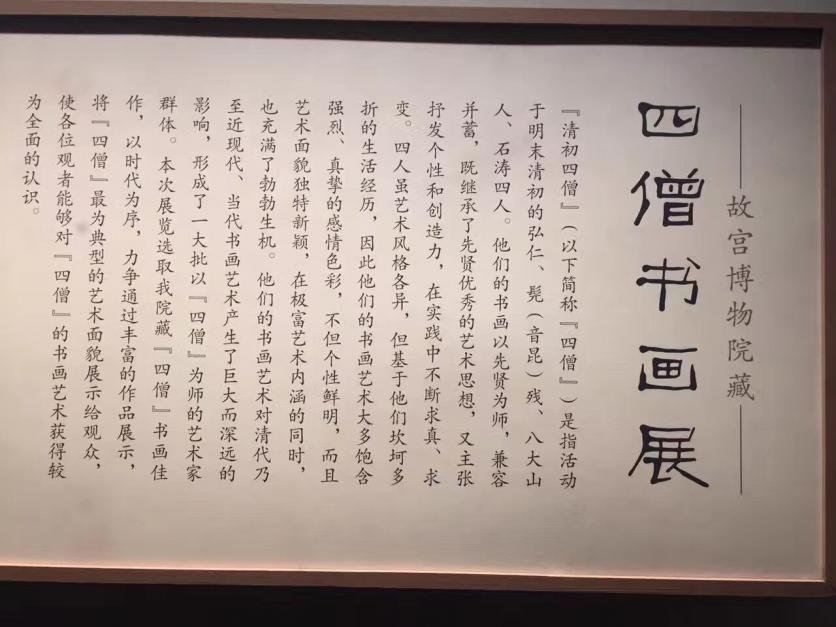 故宫博物院藏
四僧书画展
『清初四僧』（以下简称『四僧』）是指活动
于明末清初的弘仁、髡（音昆）残、八大山
人、石涛四人。他们的书画以先贤为师，兼容
并蓄，既继承了先贤优秀的艺术思想，又主张
抒发个性和创造力，在实践中不断求真、求
变。四人虽艺术风格各异，但基于他们坎坷多
折的生活经历，因此他们的书画艺术大多饱含
强烈、真挚的感情色彩，不但个性鲜明，而且
艺术面貌独特新颖，在极富艺术内涵的同时，
也充满了勃勃生机。他们的书画艺术对清代乃
至近现代、当代书画艺术产生了巨大而深远的
影响，形成了一大批以『四僧』为师的艺术家
群体。本次展览选取我院藏『四僧』书画佳
作，以时代为序，力争通过丰富的作品展示，
将『四僧』最为典型的艺术面貌展示给观众，
使各位观者能够对『四僧』的书画艺术获得较
为全面的认识。